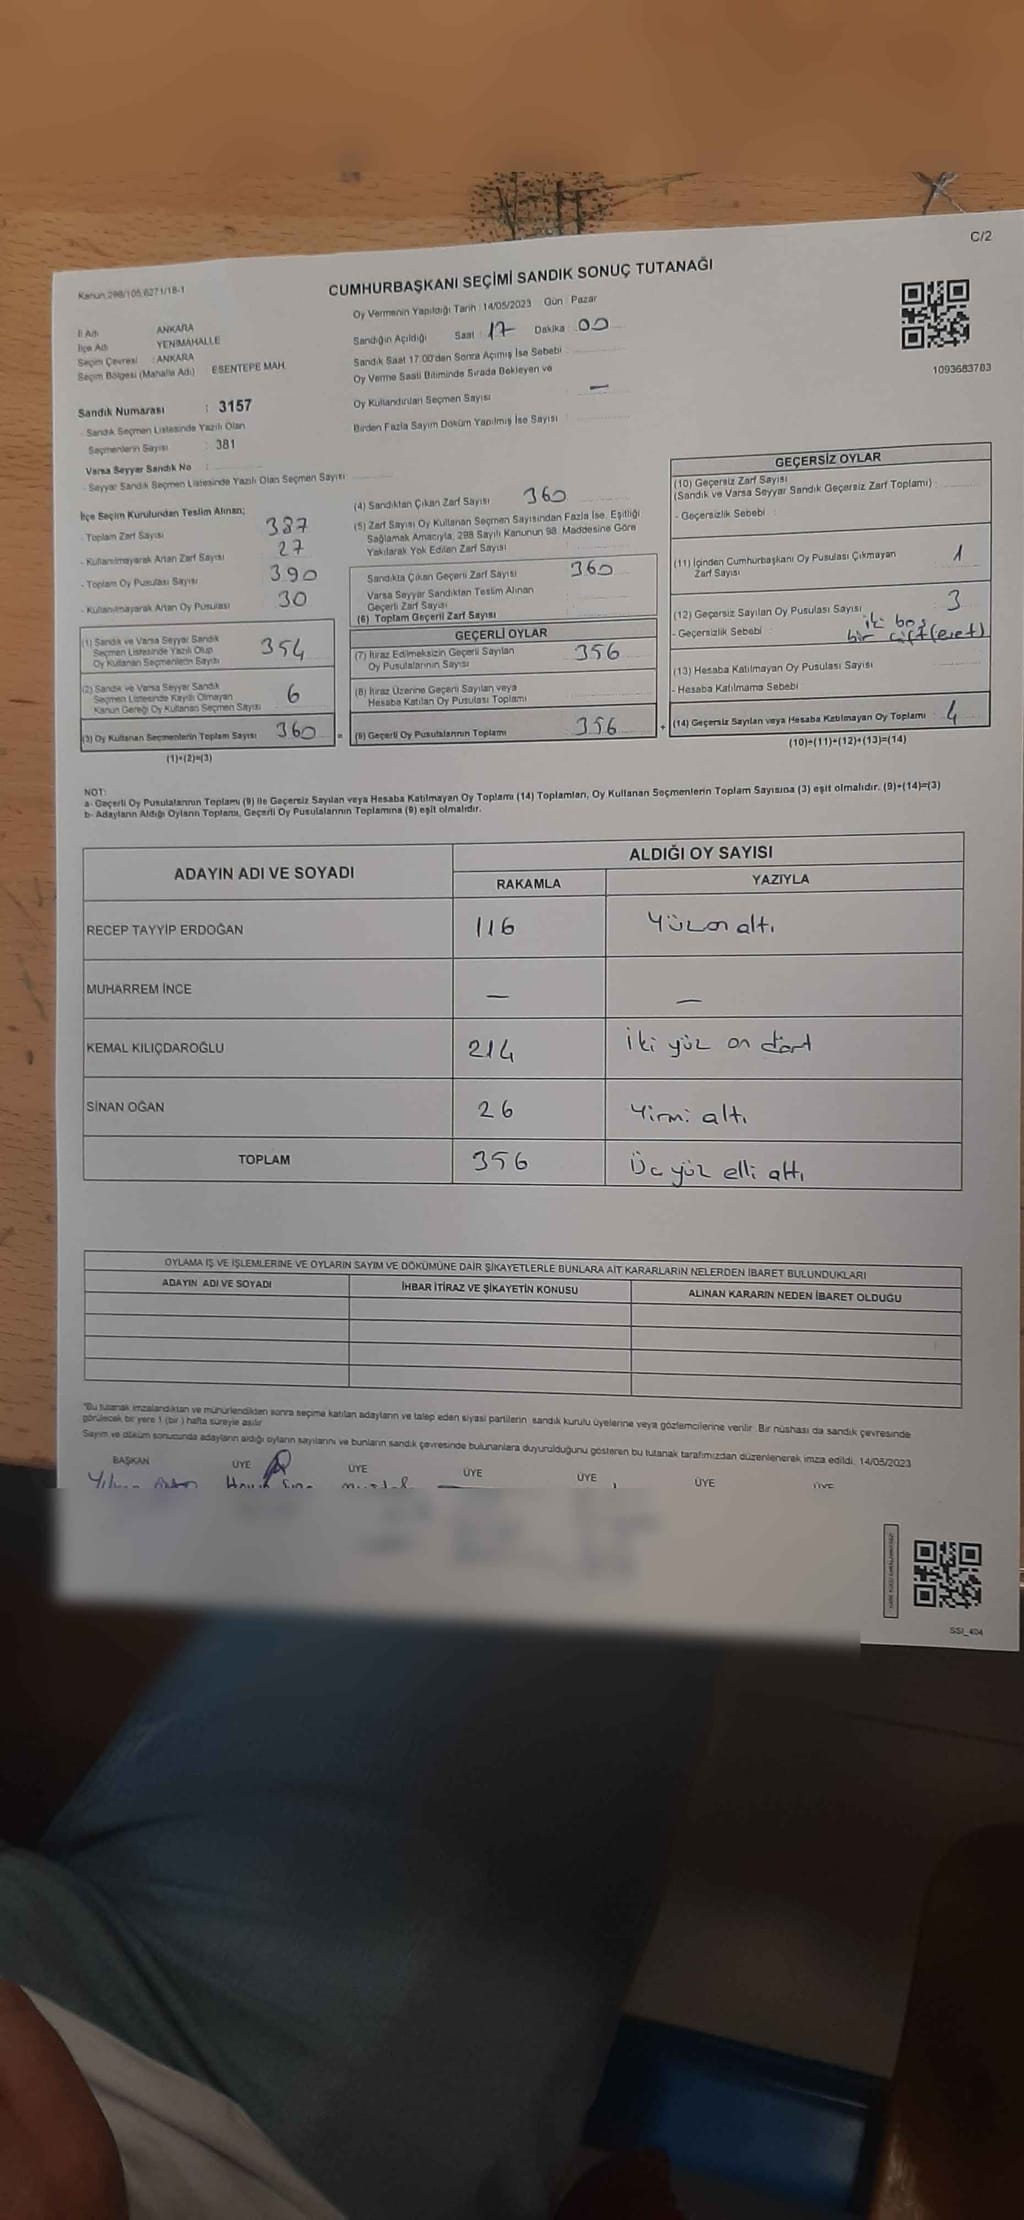 C/2
Kanun 298/105,6271/18-1
CUMHURBAŞKANI SEÇİMİ SANDIK SONUÇ TUTANAĞI
Oy Vermenin Yapıldığı Tarih : 14/05/2023 Gün : Pazar
İl Adı ANKARA
İlçe Adı YENİMAHALLE
Seçim Çevresi : ANKARA
Seçim Bölgesi (Mahalle Adı) ESENTEPE MAH.
Sandığın Açıldığı Saat : 17 Dakika : 00
Sandık Saat 17:00'den Sonra Açımış İse Sebebi :
Oy Verme Saati Bitiminde Sırada Bekleyen ve
Oy Kullandırılan Seçmen Sayısı —
Birden Fazla Sayım Döküm Yapılmış İse Sayısı :
1093683783
Sandık Numarası : 3157
- Sandık Seçmen Listesinde Yazılı Olan
Seçmenlerin Sayısı : 381
Varsa Seyyar Sandık No :
- Seyyar Sandık Seçmen Listesinde Yazılı Olan Seçmen Sayısı
İlçe Seçim Kurulundan Teslim Alınan;
- Toplam Zarf Sayısı 387
- Kullanılmayarak Artan Zarf Sayısı 27
- Toplam Oy Pusulası Sayısı 390
- Kullanılmayarak Artan Oy Pusulası 30
(1) Sandık ve Varsa Seyyar Sandık
Seçmen Listesinde Yazılı Olup
Oy Kullanan Seçmenlerin Sayısı 354
(2) Sandık ve Varsa Seyyar Sandık
Seçmen Listesinde Kayıtlı Olmayan
Kanun Gereği Oy Kullanan Seçmen Sayısı 6
(3) Oy Kullanan Seçmenlerin Toplam Sayısı 360 =
(1)+(2)=(3)
(4) Sandıktan Çıkan Zarf Sayısı 360
(5) Zarf Sayısı Oy Kullanan Seçmen Sayısından Fazla İse, Eşitliği
Sağlamak Amacıyla, 298 Sayılı Kanunun 98. Maddesine Göre
Yakılarak Yok Edilen Zarf Sayısı
Sandıkta Çıkan Geçerli Zarf Sayısı 360
Varsa Seyyar Sandıktan Teslim Alınan
Geçerli Zarf Sayısı
(6) Toplam Geçerli Zarf Sayısı
GEÇERLİ OYLAR
(7) İtiraz Edilmeksizin Geçerli Sayılan
Oy Pusulalarının Sayısı 356
(8) İtiraz Üzerine Geçerli Sayılan veya
Hesaba Katılan Oy Pusulası Toplamı
(9) Geçerli Oy Pusulalarının Toplamı 356 +
GEÇERSİZ OYLAR
(10) Geçersiz Zarf Sayısı
(Sandık ve Varsa Seyyar Sandık Geçersiz Zarf Toplamı) :
- Geçersizlik Sebebi :
(11) İçinden Cumhurbaşkanı Oy Pusulası Çıkmayan
Zarf Sayısı 1
(12) Geçersiz Sayılan Oy Pusulası Sayısı 3
- Geçersizlik Sebebi : iki boş
bir çift (evet)
(13) Hesaba Katılmayan Oy Pusulası Sayısı
- Hesaba Katılmama Sebebi
(14) Geçersiz Sayılan veya Hesaba Katılmayan Oy Toplamı : 4
(10)+(11)+(12)+(13)=(14)
NOT:
a- Geçerli Oy Pusulalarının Toplamı (9) ile Geçersiz Sayılan veya Hesaba Katılmayan Oy Toplamı (14) Toplamları, Oy Kullanan Seçmenlerin Toplam Sayısına (3) eşit olmalıdır. (9)+(14)=(3)
b- Adayların Aldığı Oyların Toplamı, Geçerli Oy Pusulalarının Toplamına (9) eşit olmalıdır.
ADAYIN ADI VE SOYADI
ALDIĞI OY SAYISI
RAKAMLA YAZIYLA
RECEP TAYYİP ERDOĞAN 116 Yüz on altı
MUHARREM İNCE — —
KEMAL KILIÇDAROĞLU 214 iki yüz on dört
SİNAN OĞAN 26 Yirmi altı
TOPLAM 356 Üç yüz elli altı
OYLAMA İŞ VE İŞLEMLERİNE VE OYLARIN SAYIM VE DÖKÜMÜNE DAİR ŞİKAYETLERLE BUNLARA AİT KARARLARIN NELERDEN İBARET BULUNDUKLARI
ADAYIN ADI VE SOYADI İHBAR İTİRAZ VE ŞİKAYETİN KONUSU ALINAN KARARIN NEDEN İBARET OLDUĞU
*Bu tutanak imzalandıktan ve mühürlendikten sonra seçime katılan adayların ve talep eden siyasi partilerin sandık kurulu üyelerine veya gözlemcilerine verilir. Bir nüshası da sandık çevresinde
görülecek bir yere 1 (bir) hafta süreyle asılır.
Sayım ve döküm sonucunda adayların aldığı oyların sayılarını ve bunların sandık çevresinde bulunanlara duyurulduğunu gösteren bu tutanak tarafımızdan düzenlenerek imza edildi. 14/05/2023
BAŞKAN ÜYE ÜYE ÜYE ÜYE ÜYE ÜYE
SSI_404